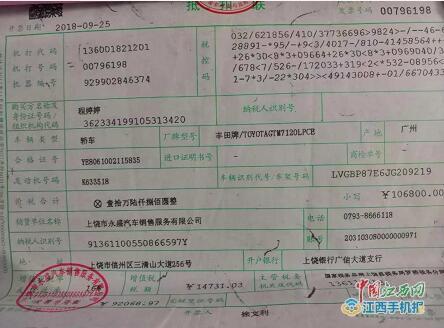 抵扣联
开票日期 2018-09-25
发票号码 00796198
机打代码 136001821201
机打号码 00796198
机器编号 929902846374
税控码
032/621856/410/37736696>9824>-/--46-6
28891*-95/-+9<3/4017-/810-41458564+*+
+26*30<8*3+09664+26*30<8*3+0969040/3
/678<7*526-/172033+319<2<*532-08956<
1-7*3/--22*304>><49143008+-01/6670433
购买方名称及
身份证号码/
组织机构代码
程婷婷
362334199105313420
纳税人识别号
车辆类型 轿车
厂牌型号 丰田牌/TOYOTAGTM7120LPCE
产地 广州
合格证号 YE8061002115835
进口证明书号
商检单号
发动机号码 K633518
车辆识别代号/车架号码 LVGBP87E6JG209219
价税合计 ⊗ 壹拾万陆仟捌佰圆整
小写 ￥106800.00
销货单位名称 上饶市永盛汽车销售服务有限公司
电话 0793-8666118
纳税人识别号 91361100550866597Y
账号 203103080000000971
地址 上饶市信州区三清山大道256号
开户银行 上饶银行广信大道支行
16%
增值税
税额
￥14731.03
主管税务
机关及代码
92068.97
徐文利
中国江西网
江西手机报